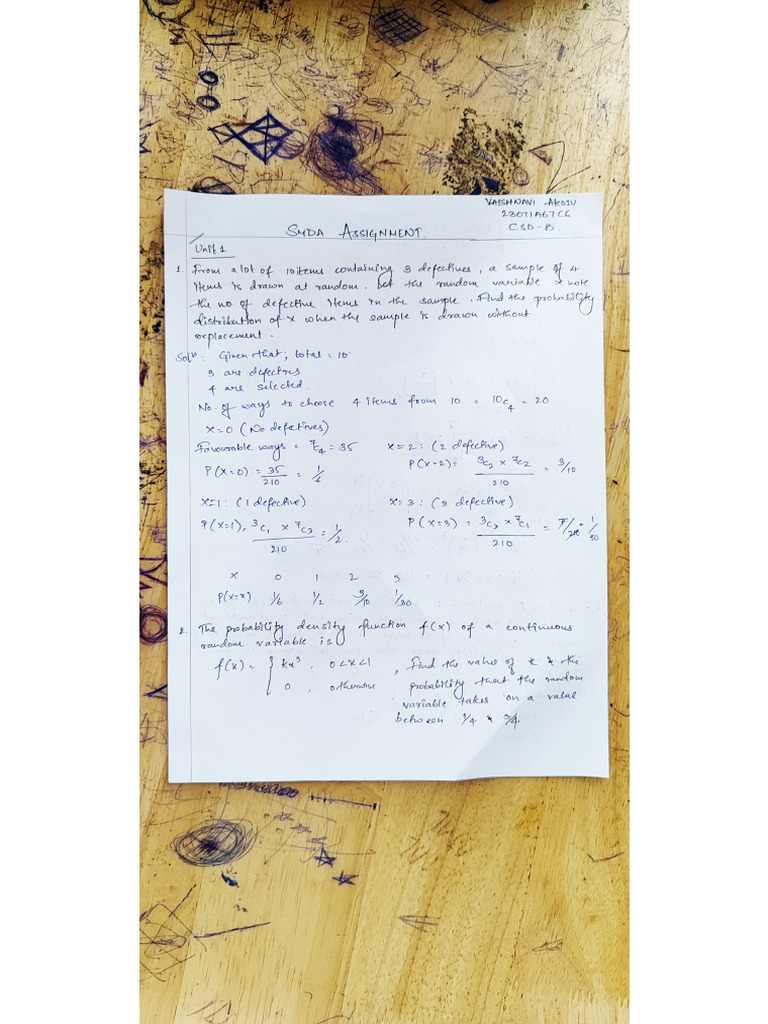 VAISHNAVI AKOJU
23071A67C6
CSD-B
SMDA ASSIGNMENT.
Unit 1
1. From a lot of 10 items containing 3 defectives, a sample of 4
items is drawn at random. Let the random variable x note
the no of defective items in the sample. Find the probability
distribution of x when the sample is drawn without
replacement.
Solⁿ: Given that; total = 10
3 are defectives
4 are selected.
No. of ways to choose 4 items from 10 = 10c₄ = 20
x=0 (No defectives)
Favourable ways = ⁷c₄ = 35
P(x=0) = 35/210 = 1/6
x=1: (1 defective)
P(x=1) = ³c₁ x ⁷c₃/210 = 1/2.
x=2: (2 defective)
P(x=2) = ³c₂ x ⁷c₂/210 = 3/10
x=3: (3 defective)
P(x=3) = ³c₃ x ⁷c₁/210 = 7/210 = 1/30
x 0 1 2 3
P(x=x) 1/6 1/2 3/10 1/30
2. The probability density function f(x) of a continuous
random variable is
f(x) = { kx³, 0<x<1
0, otherwise
, Find the value of k & the
probability that the random
variable takes on a value
between 1/4 & 3/4